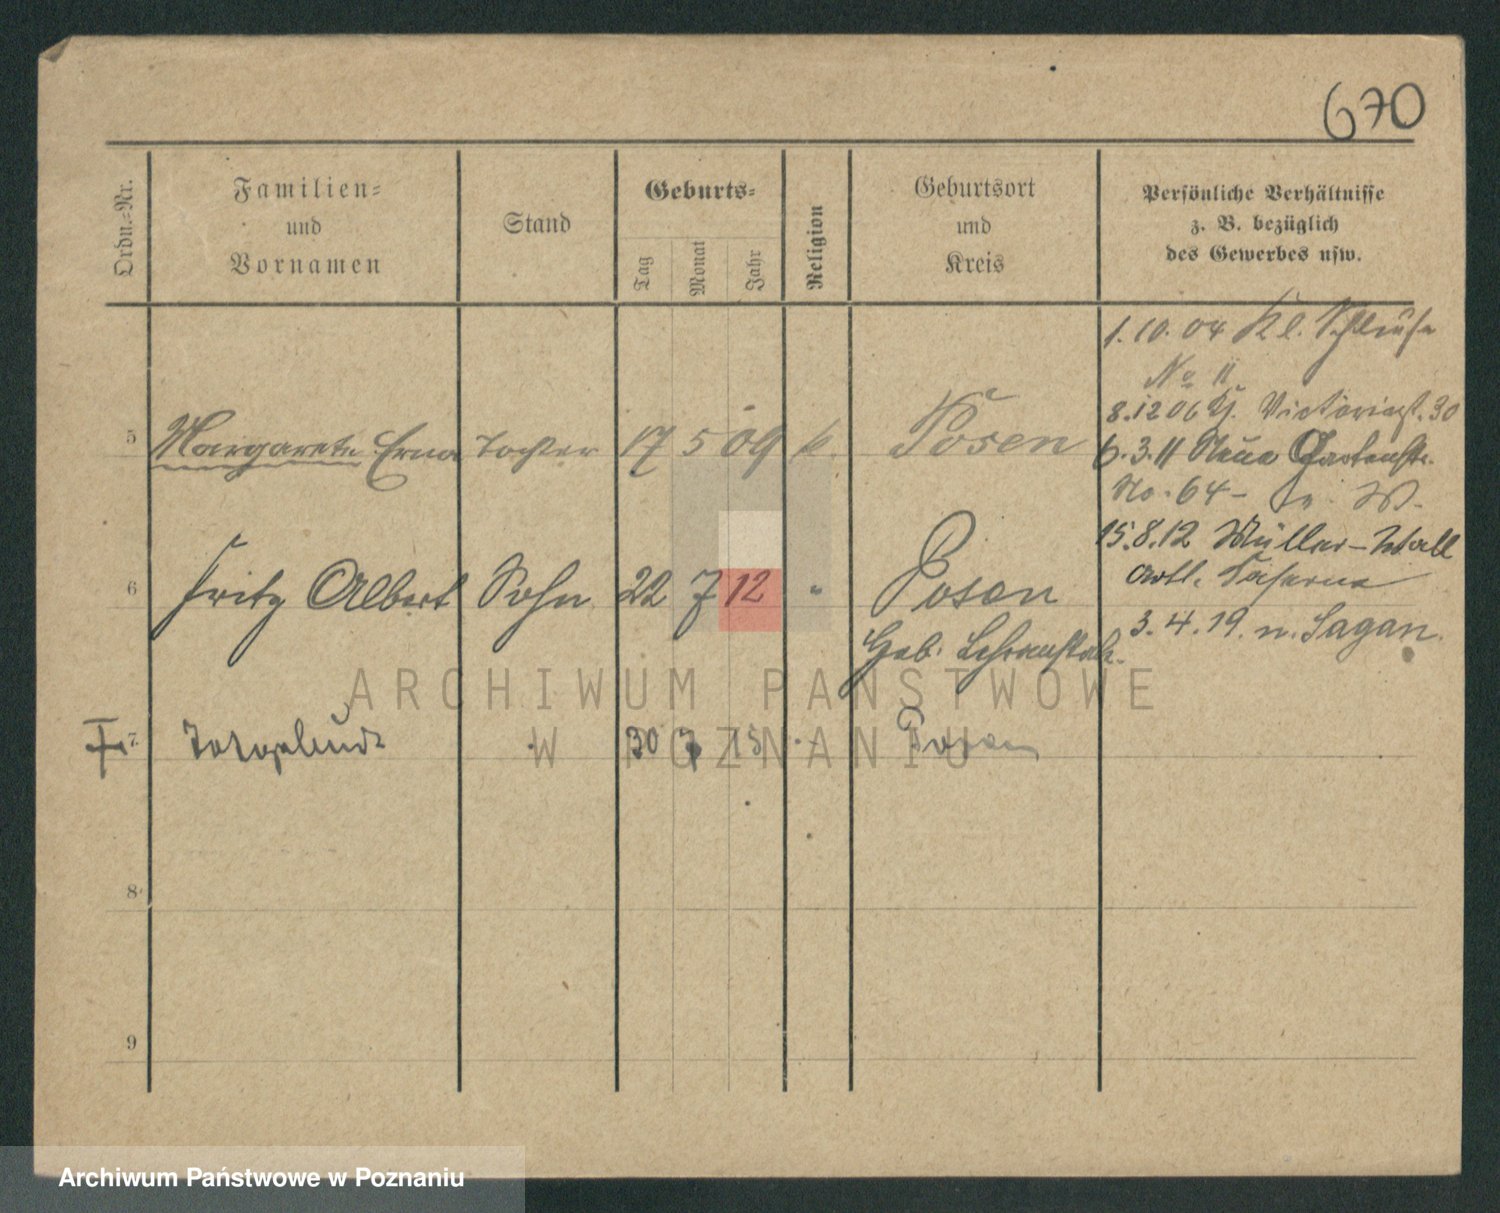 670
Ordn.-Nr.
Familien-
und
Vornamen
Stand
Geburts-
Tag
Monat
Jahr
Religion
Geburtsort
und
Kreis
Persönliche Verhältnisse
z. B. bezüglich
des Gewerbes usw.
1. 10. 04 Kl. Schleuse
No 11
8.12 06 Victoriast. 30
6. 3. 11 Neue Gartenstr.
No. 64 –
15. 8. 12 Müller-Wall
Artl. Kaserne
3. 4. 19. n. Sagan.
5 Margarete Erna Tochter 17 5 09 k. Posen
6 Fritz Albert Sohn 22 7 12 " Posen
Geb. Lehranstalt.
7. Totgeburt 30 7 15 Posen
8
9
ARCHIWUM PAŃSTWOWE
W POZNANIU
Archiwum Państwowe w Poznaniu